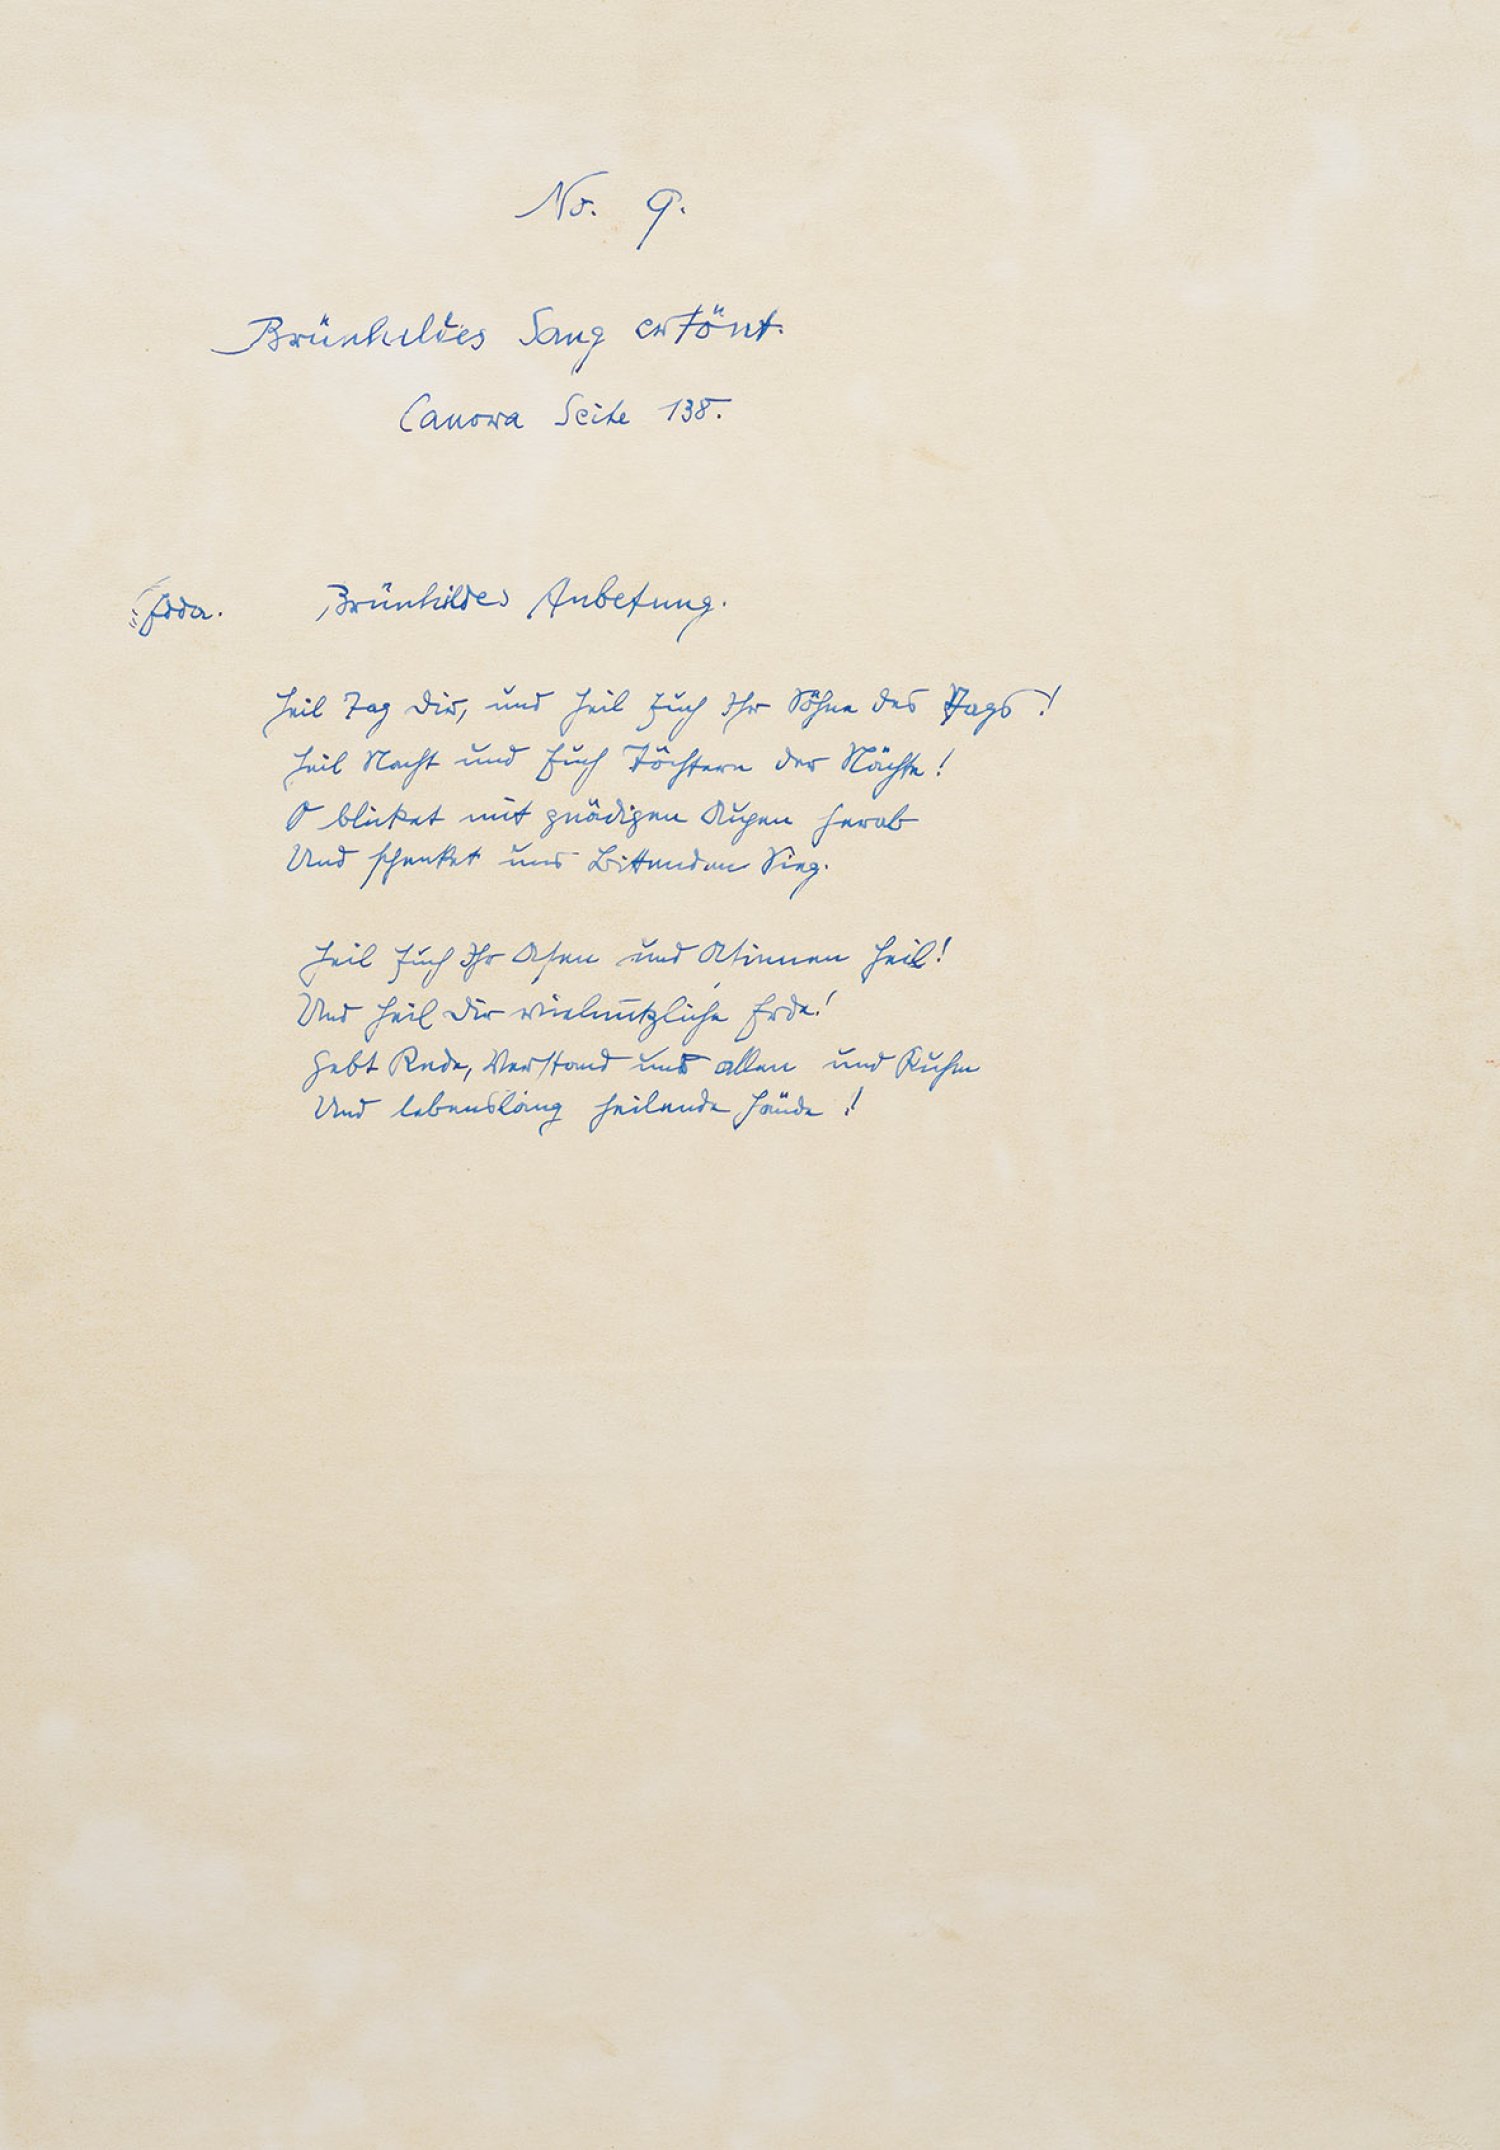 No. 9.
Brünhildes Sang ertönt.
Canova Seite 138.
Edda. Brünhildes Anbetung.
Heil Tag Dir, und Heil Euch Ihr Söhne des Tags!
Heil Nacht und Euch Töchtern der Nächte!
O blicket mit gnädigen Augen herab
Und schenket uns Bittenden Sieg.
Heil Euch Ihr Asen und Asinnen Heil!
Und Heil Dir vielnützliche Erde!
Gebt Rede, Verstand uns allen und Ruhm
Und lebenslang heilende Hände!